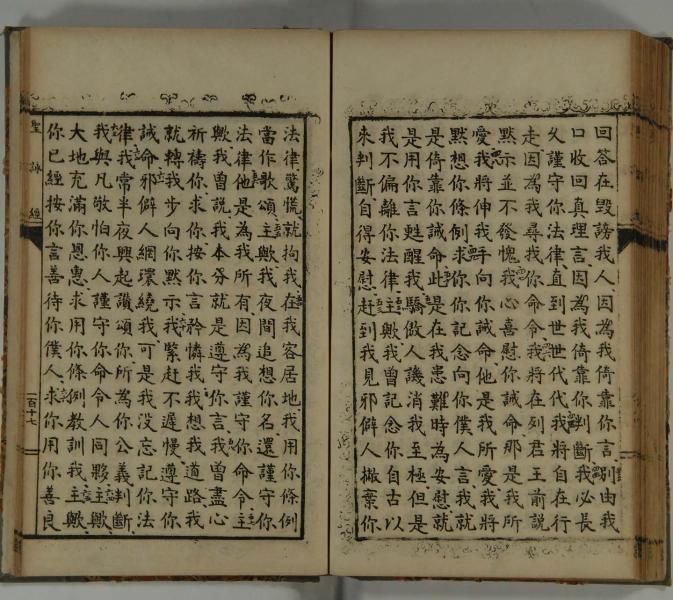 回答在毀謗我人因為我倚靠你言別由我
口收回真理言因為我倚靠你判斷我必長
久謹守你法律直到世世代代我將自在行
走因為我尋我你命令我將在列君王前說
默示並不發愧我心喜慰你誡命那是我所
愛我將伸我手向你誡命他是我所愛我將
默想你條例求你你記念向你僕人言我就
是倚靠你誡命此是在我患難時為安慰就
是用你言甦醒我驕傲人譏消我至極但是
我不偏離你法律主歟我曾記念你自古以
來判斷自得安慰赶到我見邪僻人撇棄你
法律驚慌就拘我在我客居地我用你條例
當作歌頌主歟我夜間追想你名還謹守你
法律他是為我所有因為我謹守你命令主
歟我曾說我本分就是遵守你言我曾盡心
祈禱你求你按你言矜憐我我想我道路我
就轉我步向你默示我緊赶不遲慢遵守你
誡命邪僻人網環繞我可是我没忘記你法
律我常半夜興起讚頌你所為你公義判斷
我與凡敬怕你人謹守你命令人同夥主歟
大地充滿你恩惠求用你條例教訓我主歟
你已經按你言善待你僕人求你用你善良
聖詠經
一百十七